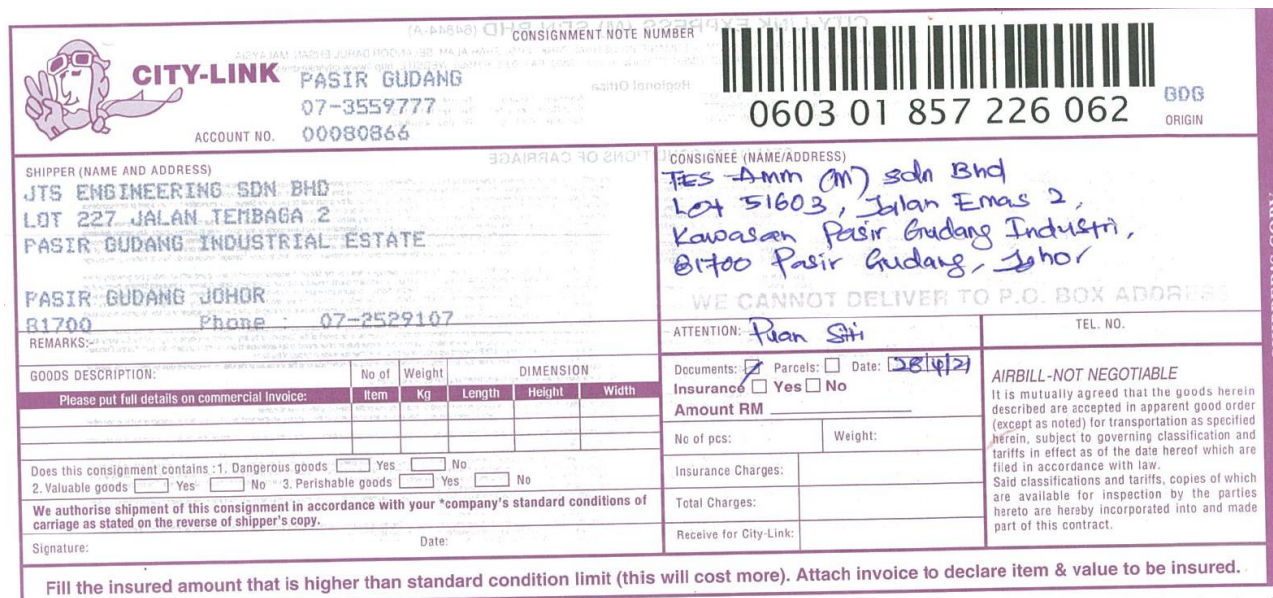 CONSIGNMENT NOTE NUMBER
CITY-LINK
PASIR GUDANG
07-3559777
ACCOUNT NO. 00080866
0603 01 857 226 062
BDG
ORIGIN
SHIPPER (NAME AND ADDRESS)
JTS ENGINEERING SDN BHD
LOT 227 JALAN TEMBAGA 2
PASIR GUDANG INDUSTRIAL ESTATE
PASIR GUDANG JOHOR
81700 Phone : 07-2529107
REMARKS:
CONSIGNEE (NAME/ADDRESS)
FES Amm (M) Sdn Bhd
Lot 51603, Jalan Emas 2,
Kawasan Pasir Gudang Industri,
81700 Pasir Gudang, Johor
WE CANNOT DELIVER TO P.O. BOX ADDRESS
ATTENTION: Puan Siti
TEL. NO.
GOODS DESCRIPTION:
Please put full details on commercial Invoice:
No of Item
Weight Kg
DIMENSION
Length Height Width
Does this consignment contains :1. Dangerous goods Yes No
2. Valuable goods Yes No 3. Perishable goods Yes No
We authorise shipment of this consignment in accordance with your *company's standard conditions of
carriage as stated on the reverse of shipper's copy.
Signature: Date:
Documents: Parcels: Date: 28/4/21
Insurance Yes No
Amount RM
No of pcs: Weight:
Insurance Charges:
Total Charges:
Receive for City-Link:
AIRBILL-NOT NEGOTIABLE
It is mutually agreed that the goods herein
described are accepted in apparent good order
(except as noted) for transportation as specified
herein, subject to governing classification and
tariffs in effect as of the date hereof which are
filed in accordance with law.
Said classifications and tariffs, copies of which
are available for inspection by the parties
hereto are hereby incorporated into and made
part of this contract.
Fill the insured amount that is higher than standard condition limit (this will cost more). Attach invoice to declare item & value to be insured.